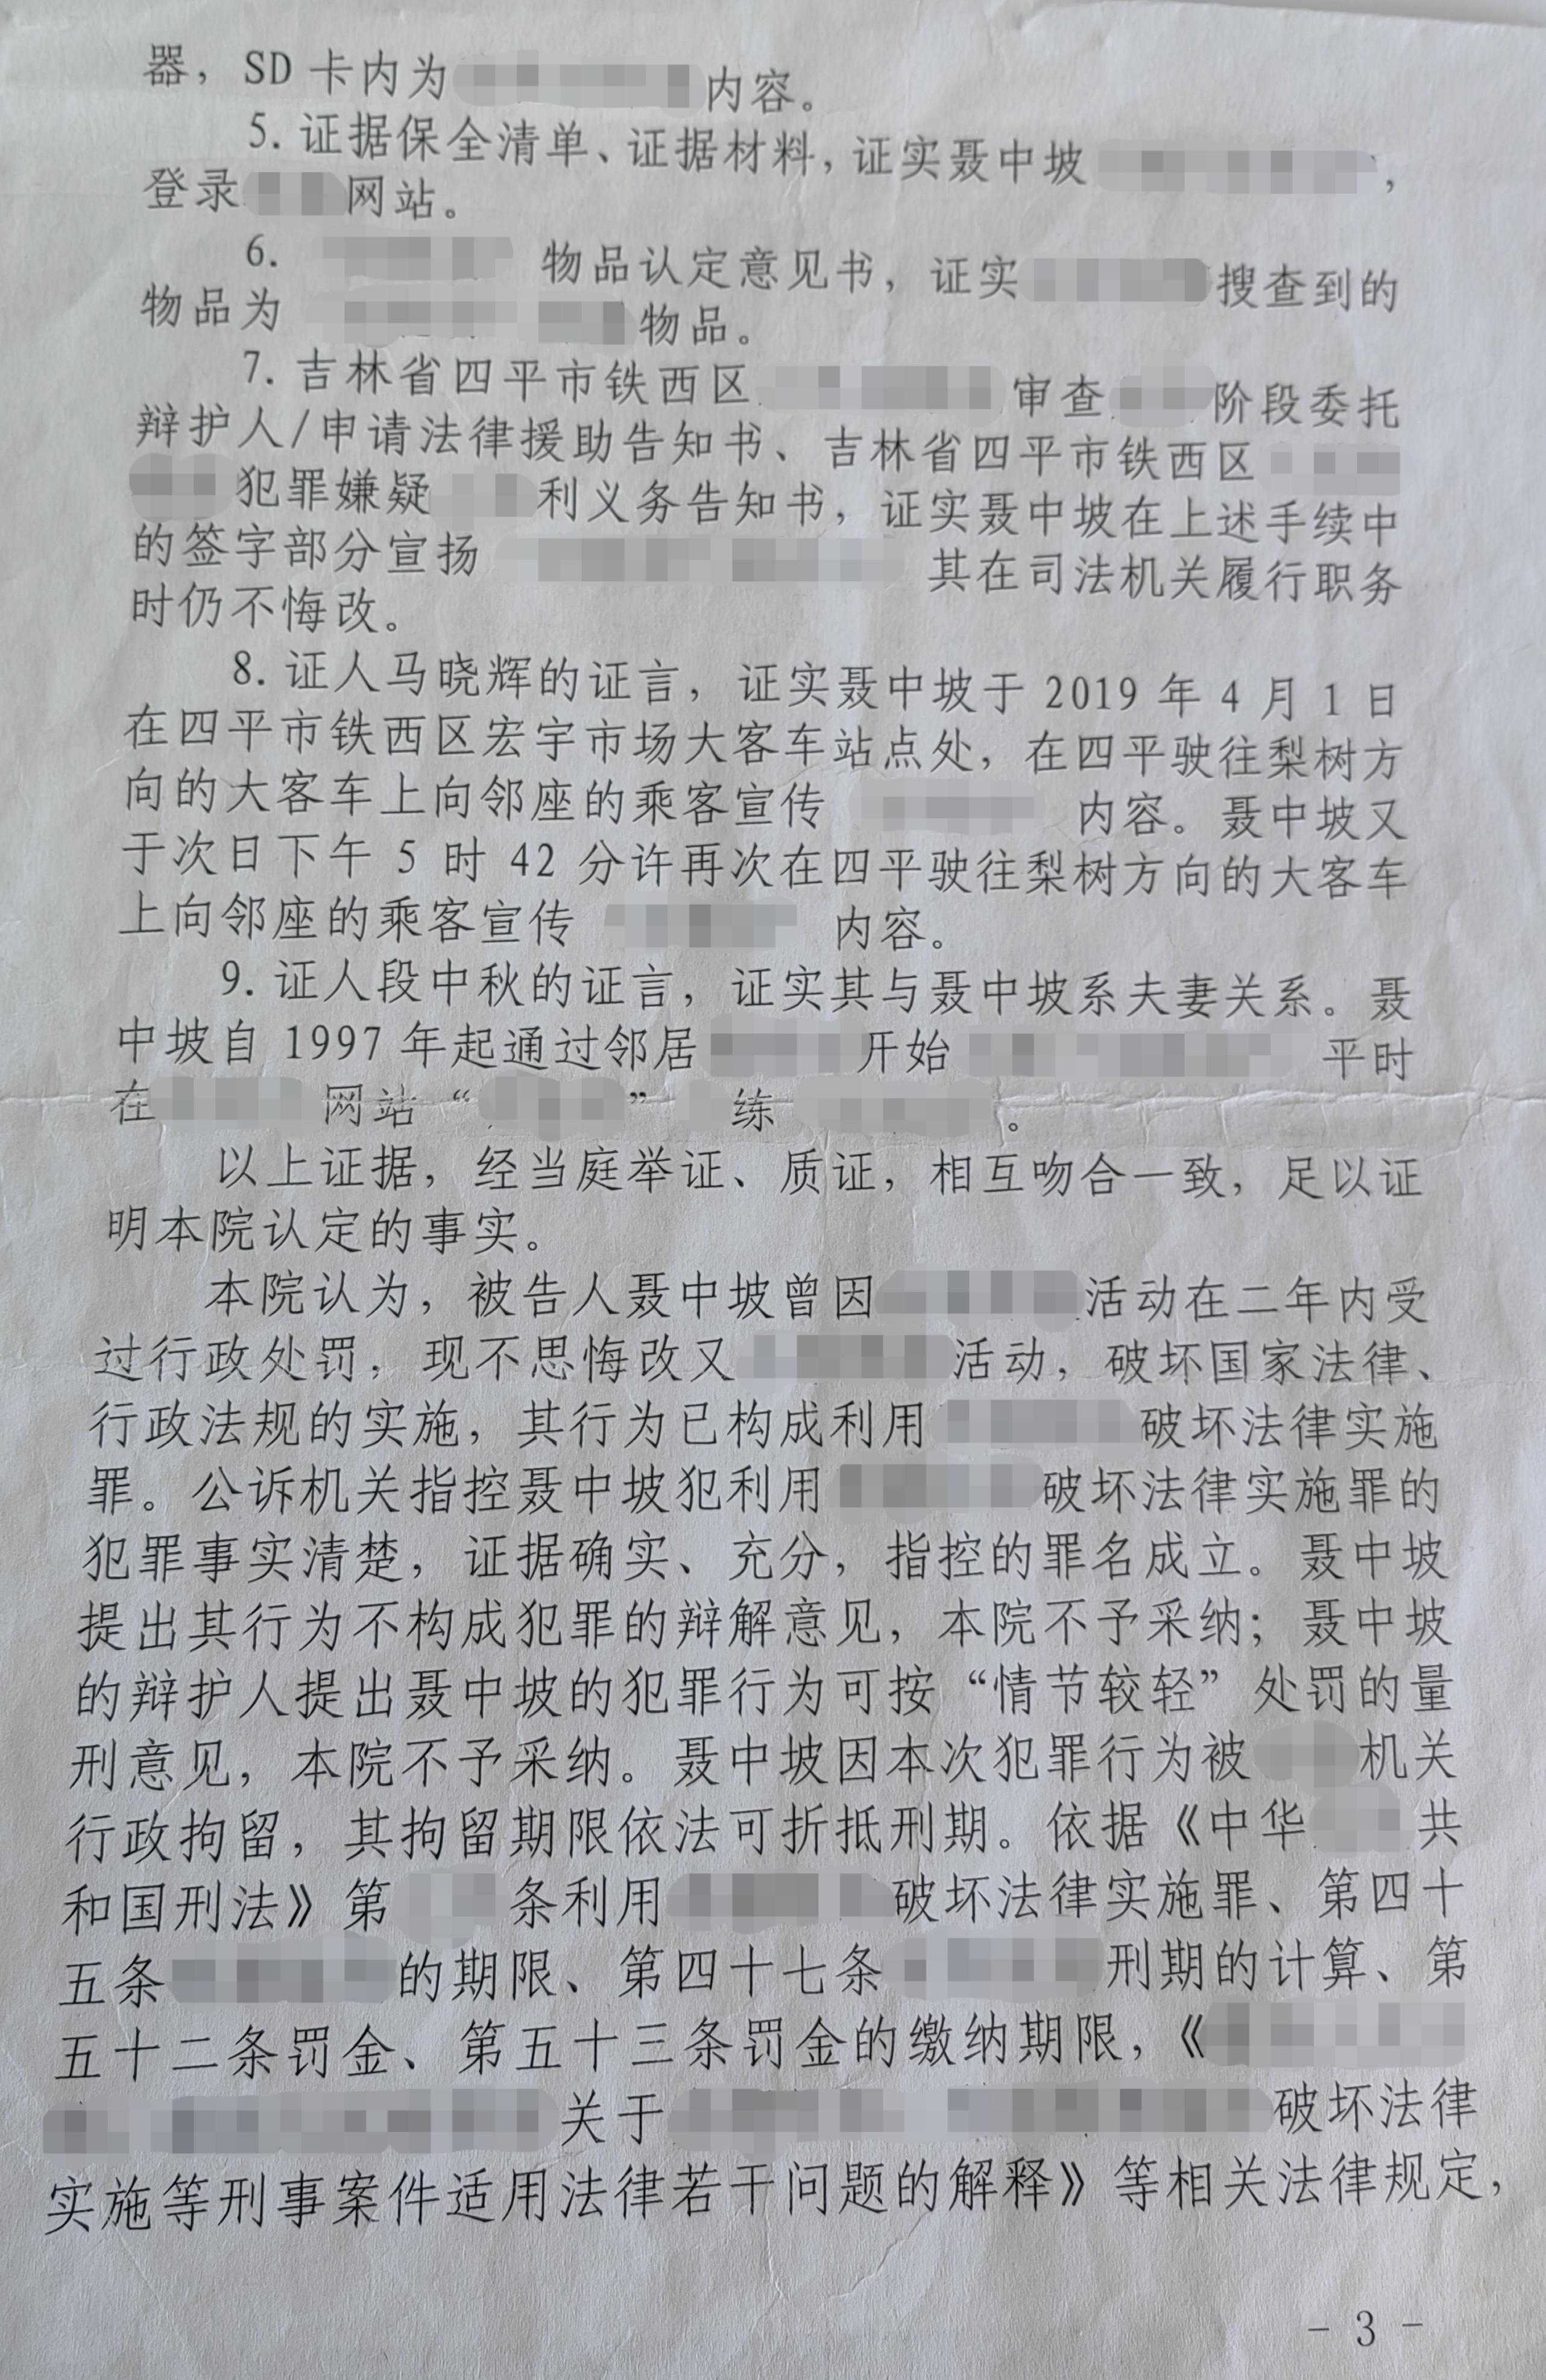 器，SD 卡内为 内容。
5. 证据保全清单、证据材料，证实聂中坡 ，
登录 网站。
6. 物品认定意见书，证实 搜查到的
物品为 物品。
7. 吉林省四平市铁西区 审查 阶段委托
辩护人/申请法律援助告知书、吉林省四平市铁西区
犯罪嫌疑 利义务告知书，证实聂中坡在上述手续中
的签字部分宣扬 其在司法机关履行职务
时仍不悔改。
8. 证人马晓辉的证言，证实聂中坡于 2019 年 4 月 1 日
在四平市铁西区宏宇市场大客车站点处，在四平驶往梨树方
向的大客车上向邻座的乘客宣传 内容。聂中坡又
于次日下午 5 时 42 分许再次在四平驶往梨树方向的大客车
上向邻座的乘客宣传 内容。
9. 证人段中秋的证言，证实其与聂中坡系夫妻关系。聂
中坡自 1997 年起通过邻居 开始 平时
在 网站“ ” 练 。
以上证据，经当庭举证、质证，相互吻合一致，足以证
明本院认定的事实。
本院认为，被告人聂中坡曾因 活动在二年内受
过行政处罚，现不思悔改又 活动，破坏国家法律、
行政法规的实施，其行为已构成利用 破坏法律实施
罪。公诉机关指控聂中坡犯利用 破坏法律实施罪的
犯罪事实清楚，证据确实、充分，指控的罪名成立。聂中坡
提出其行为不构成犯罪的辩解意见，本院不予采纳；聂中坡
的辩护人提出聂中坡的犯罪行为可按“情节较轻”处罚的量
刑意见，本院不予采纳。聂中坡因本次犯罪行为被 机关
行政拘留，其拘留期限依法可折抵刑期。依据《中华 共
和国刑法》第 条利用 破坏法律实施罪、第四十
五条 的期限、第四十七条 刑期的计算、第
五十二条罚金、第五十三条罚金的缴纳期限，《
关于 破坏法律
实施等刑事案件适用法律若干问题的解释》等相关法律规定，
- 3 -